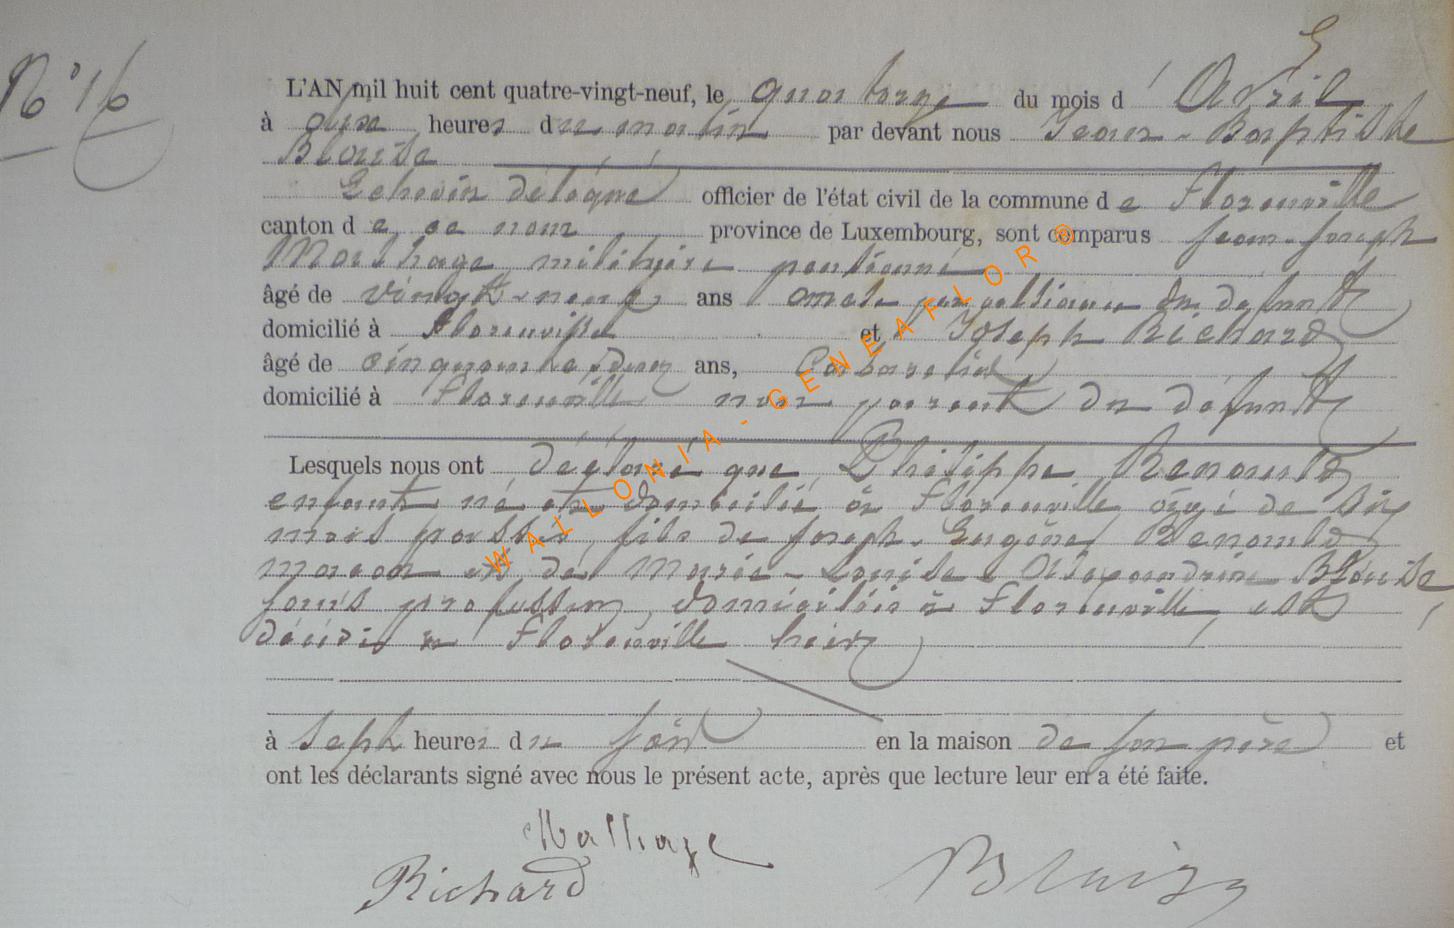 N° 16
L'AN mil huit cent quatre-vingt-neuf, le quatorze du mois d' Avril
à dix heures du matin par devant nous Jean-Baptiste
Blaise
Echevin délégué officier de l'état civil de la commune de Florenville
canton de ce nom province de Luxembourg, sont comparus Jean-Joseph
militaire pentionné
âgé de vingt-neuf ans oncle du défunt
domicilié à Florenville et Joseph Richard
âgé de cinquante-deux ans, Cabaretier
domicilié à Florenville non parent du défunt
Lesquels nous ont déclaré que Philippe Renauld
enfant né et domicilié à Florenville âgé de six
mois passés, fils de Joseph-Eugène Renauld
maçon et de Marie-Louise-Alexandrine Blaise
sans profession, domiciliés à Florenville, est
décédé à Florenville hier
à sept heures du soir en la maison de son père et
ont les déclarants signé avec nous le présent acte, après que lecture leur en a été faite.
Richard
Blaise
WALLONIA - GENEAFLOR ®